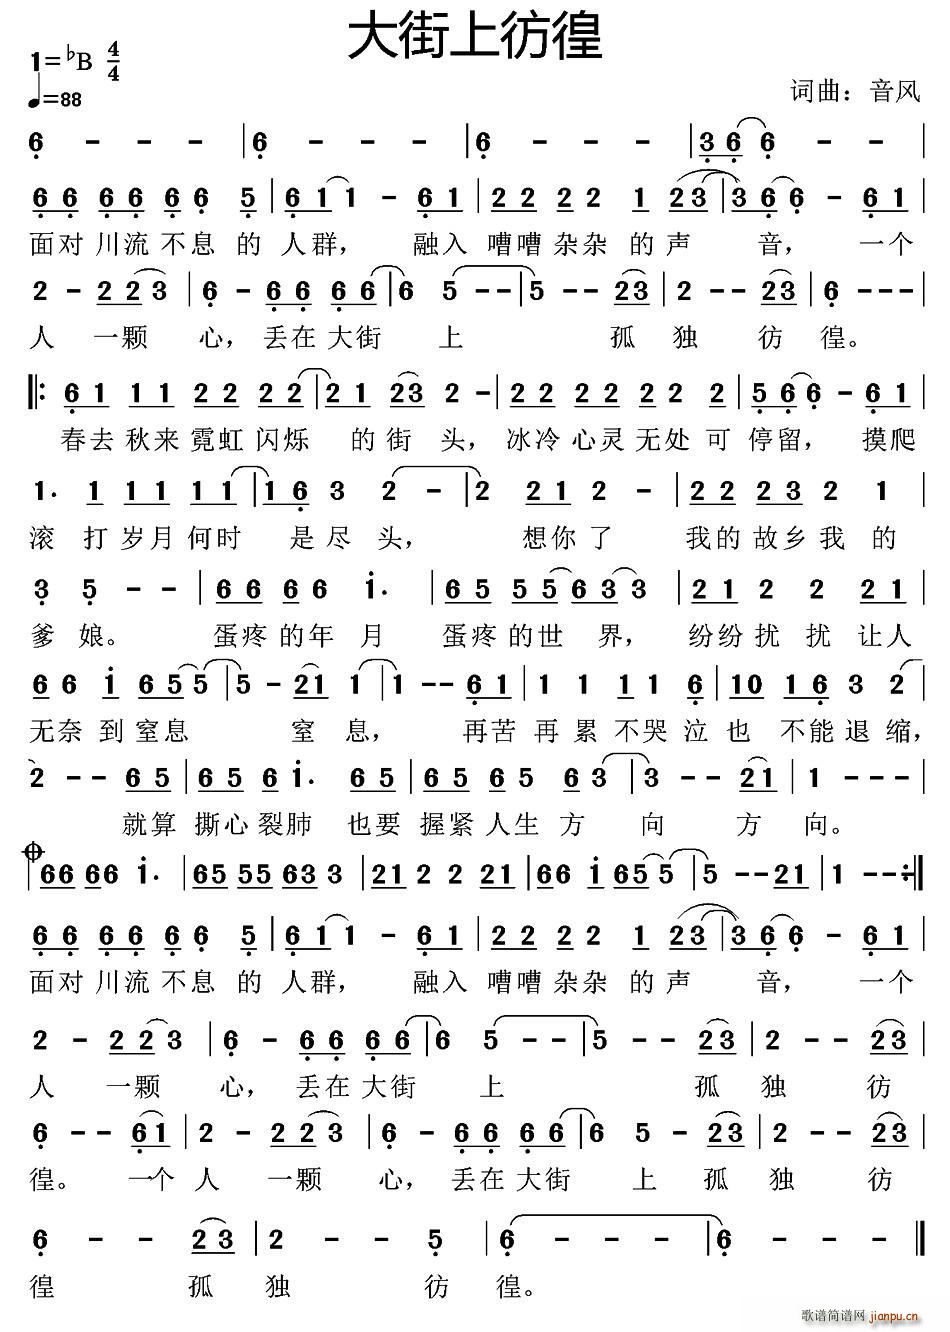 大街上彷徨
1=♭B 4/4
♩=88
词曲：音风
6 - - - | 6 - - - | 6 - - - | 3 6 6 - - |
6 6 6 6 6 6 5 | 6 1 1 - 6 1 | 2 2 2 2 2 1 2 3 | 3 6 6 - 6 1 |
面对 川流 不息 的 人群， 融入 嘈嘈 杂杂 的 声 音， 一个
2 - 2 2 3 | 6 - 6 6 6 6 | 6 5 - - | 5 - - 2 3 | 2 - - 2 3 | 6 - - - |
人 一颗 心，丢在 大街 上 孤 独 彷 徨。
|: 6 1 1 1 2 2 2 2 | 2 1 2 3 2 - | 2 2 2 2 2 2 2 | 5 6 6 - 6 1 |
春去 秋来 霓虹 闪烁 的 街 头，冰冷 心灵 无处 可 停留，摸爬
1. 1 1 1 1 1 | 1 6 3 2 - | 2 2 1 2 - | 2 2 2 3 2 1 |
滚 打 岁月 何时 是 尽 头， 想你 了 我的 故乡 我 的
3 5 - - | 6 6 6 6 i. | 6 5 5 5 6 3 3 | 2 1 2 2 2 1 |
爹 娘。 蛋疼 的年 月 蛋疼 的世 界， 纷纷 扰 扰 让人
6 6 i 6 5 5 | 5 - 2 1 1 | 1 - - 6 1 | 1 1 1 1 6 | 1 0 1 6 3 2 |
无奈 到 窒息 窒 息， 再苦 再 累 不哭 泣 也 不能 退 缩，
2 - - 6 5 | 6 5 6 i. | 6 5 6 5 6 3 | 3 - - 2 1 | 1 - - - |
就算 撕心 裂肺 也要 握紧 人生 方 向 方 向。
6 6 6 6 i. | 6 5 5 5 6 3 3 | 2 1 2 2 2 1 | 6 6 i 6 5 5 | 5 - - 2 1 | 1 - - - :|
6 6 6 6 6 6 5 | 6 1 1 - 6 1 | 2 2 2 2 2 1 2 3 | 3 6 6 - 6 1 |
面对 川流 不息 的 人群， 融入 嘈嘈 杂杂 的 声 音， 一个
2 - 2 2 3 | 6 - 6 6 6 6 | 6 5 - - | 5 - - 2 3 | 2 - - 2 3 |
人 一颗 心， 丢在 大街 上 孤 独 彷
6 - - 6 1 | 2 - 2 2 3 | 6 - 6 6 6 6 | 6 5 - 2 3 | 2 - - 2 3 |
徨。 一个 人 一颗 心，丢在 大街 上 孤 独 彷
6 - - 2 3 | 2 - - 5 | 6 - - - | 6 - - - ‖
徨 孤 独 彷 徨。
歌谱简谱网
jianpu.cn